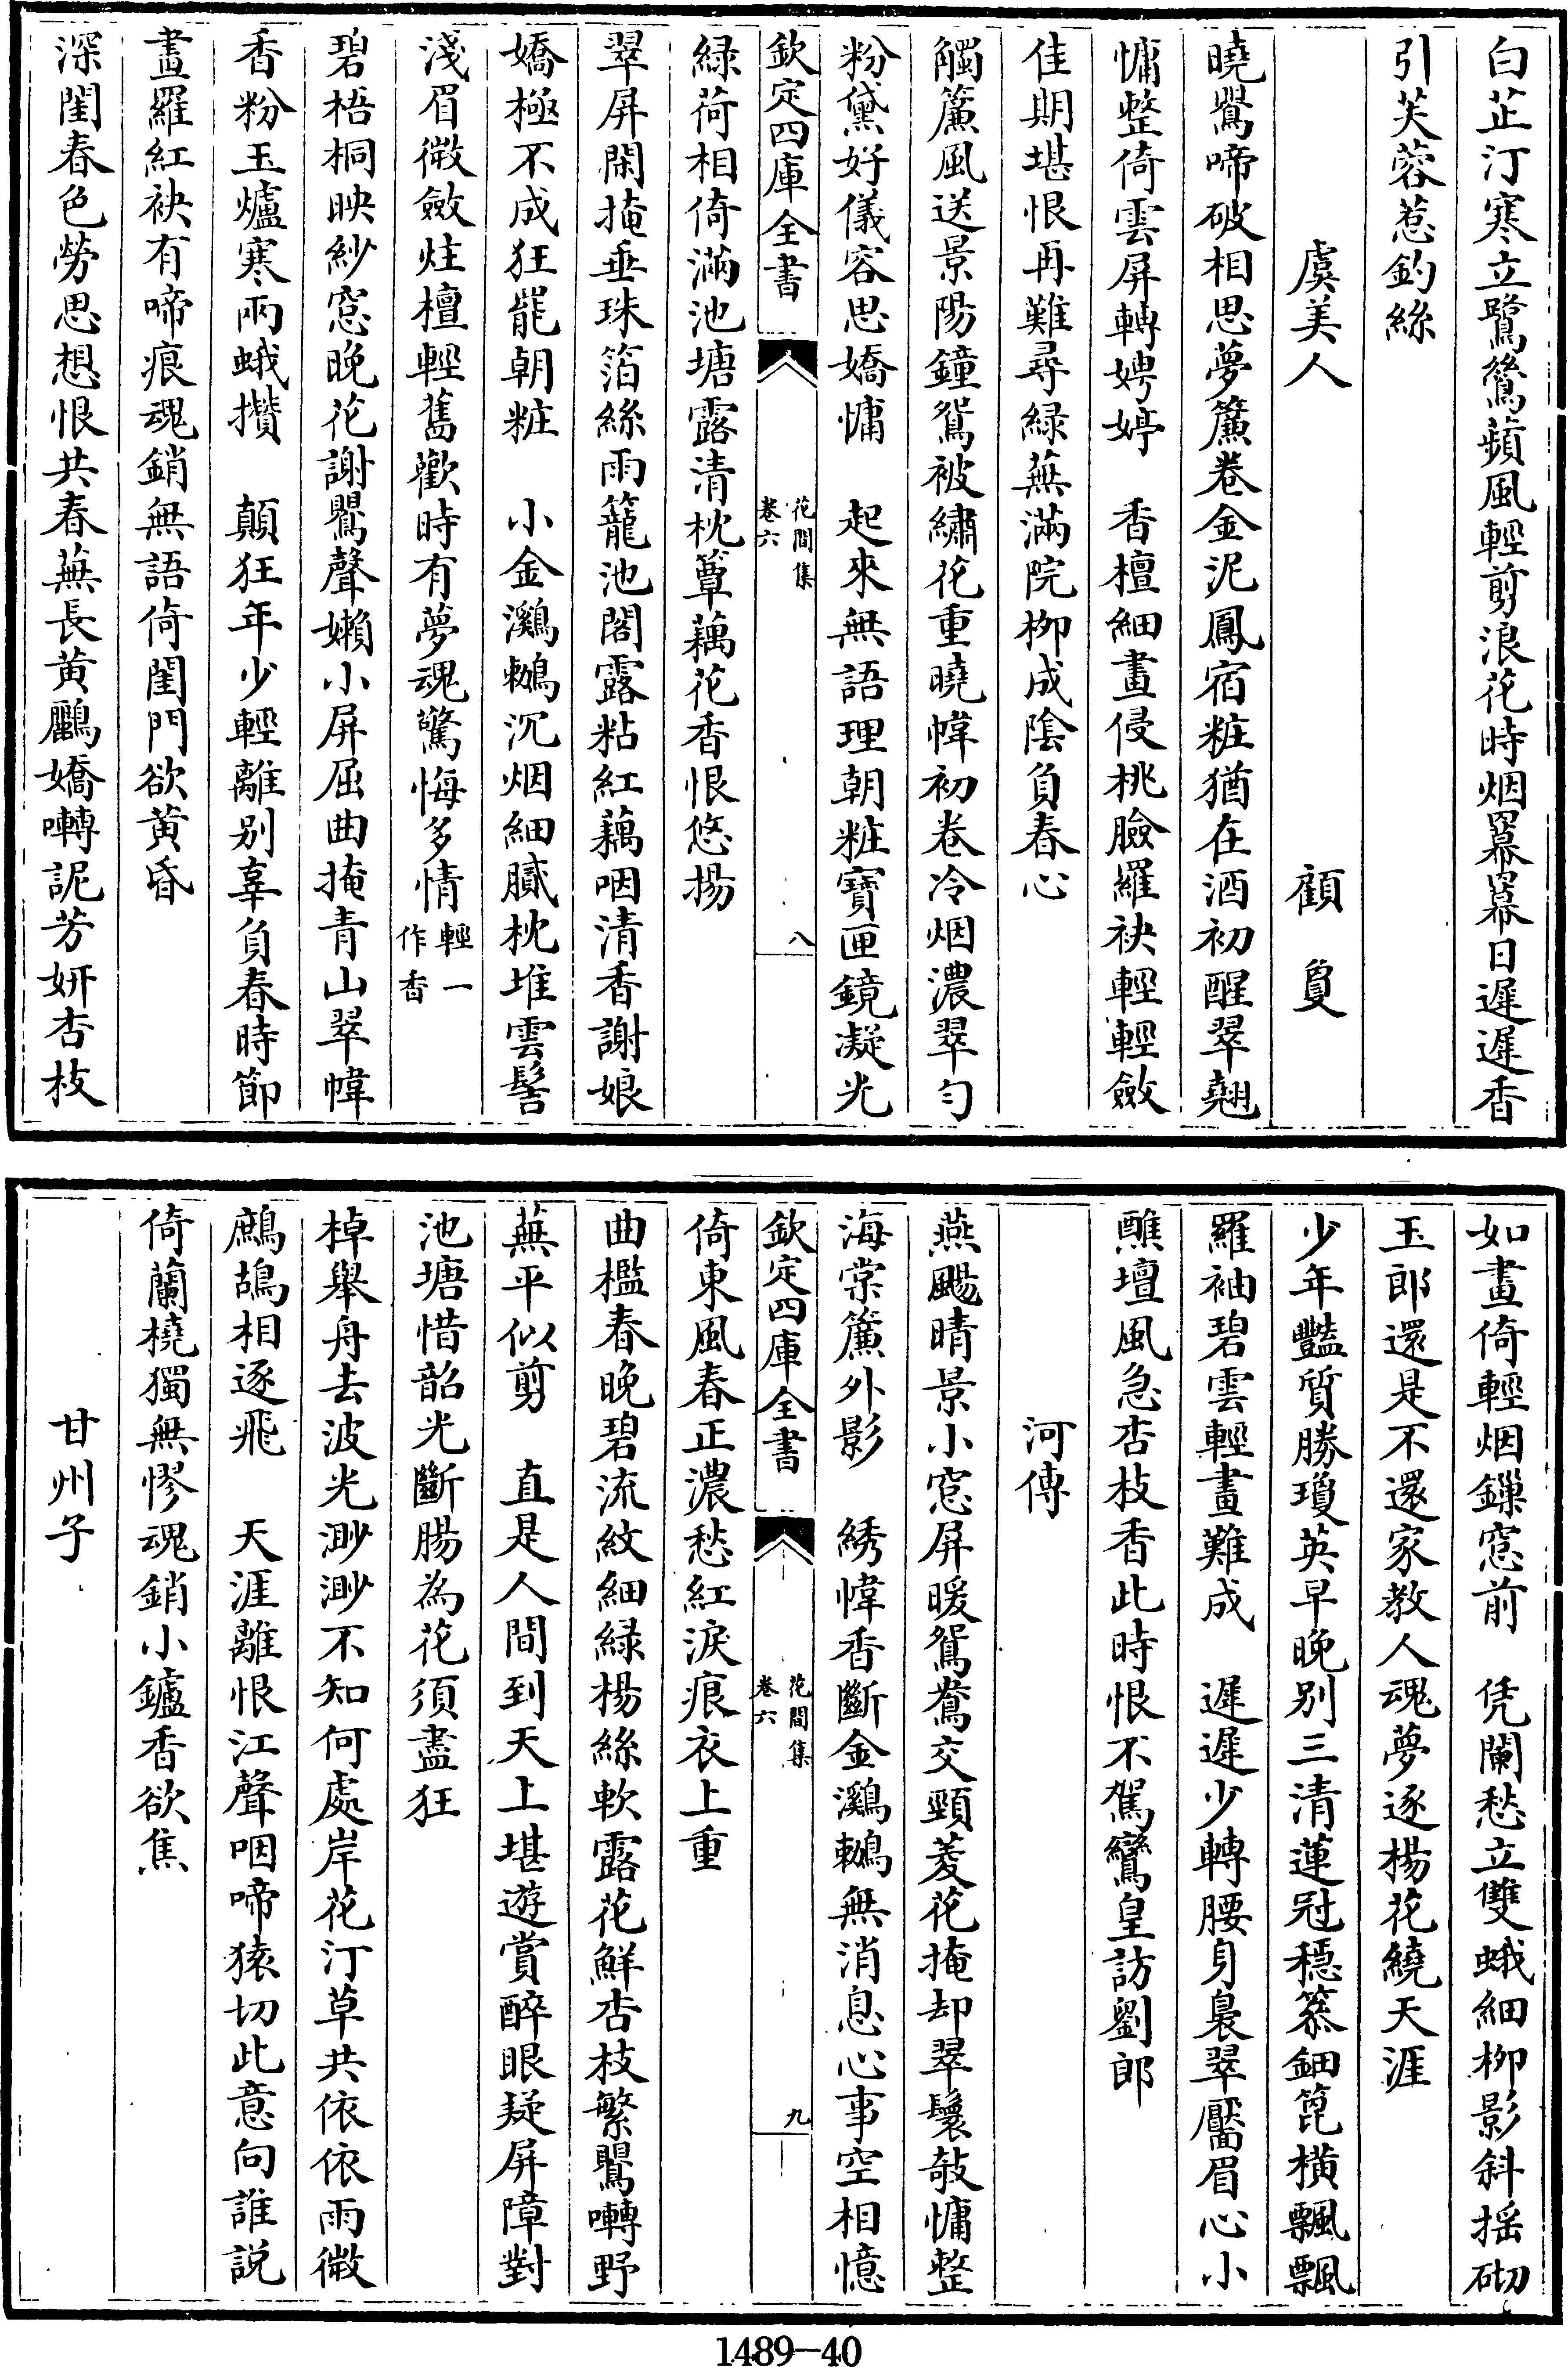 白芷汀寒立鷺鷥蘋風輕剪浪花時烟羃羃日遲遲香
引芙蓉惹釣絲
虞美人　顧夐
曉鶯啼破相思夢簾卷金泥鳳宿粧猶在酒初醒翠翹
慵整倚雲屏轉娉婷　香檀細畫侵桃臉羅袂輕輕斂
佳期堪恨再難尋綠蕪滿院柳成陰負春心
觸簾風送景陽鐘鴛被繡花重曉幃初卷冷烟濃翠勻
粉黛好儀容思嬌慵　起來無語理朝粧寶匣鏡凝光
欽定四庫全書　花間集卷六　八
綠荷相倚滿池塘露清枕簟藕花香恨悠揚
翠屏閑掩垂珠箔絲雨籠池閣露粘紅藕咽清香謝娘
嬌極不成狂罷朝粧　小金鸂鶒沉烟細膩枕堆雲髻
淺眉微斂炷檀輕舊歡時有夢魂驚悔多情輕一作香
碧梧桐映紗窓晚花謝鶯聲嬾小屏屈曲掩青山翠幃
香粉玉爐寒兩蛾攢　顛狂年少輕離别辜負春時節
畫羅紅袂有啼痕魂銷無語倚閨門欲黄昏
深閨春色勞思想恨共春蕪長黄鸝嬌囀詀芳妍杏枝
如畫倚輕烟鏁窓前　凭闌愁立雙蛾細柳影斜揺砌
玉郎還是不還家教人魂夢逐楊花繞天涯
少年豔質勝瓊英早晚别三清蓮冠穩篸鈿篦橫飄飄
羅袖碧雲輕畫難成　遲遲少轉腰身裊翠靨眉心小
醮壇風急杏枝香此時恨不駕鸞皇訪劉郎
河傳
燕颺晴景小窓屏暖鴛鴦交頸菱花掩却翠鬟敧慵整
海棠簾外影　綉幃香斷金鸂鶒無消息心事空相憶
欽定四庫全書　花間集卷六　九
倚東風春正濃愁紅淚痕衣上重
曲檻春晚碧流紋細綠楊絲軟露花鮮杏枝繁鶯囀野
蕪平似剪　直是人間到天上堪遊賞醉眼疑屏障對
池塘惜韶光斷腸為花須盡狂
棹舉舟去波光渺渺不知何處岸花汀草共依依雨微
鷓鴣相逐飛　天涯離恨江聲咽啼猿切此意向誰説
倚蘭橈獨無憀魂銷小鑪香欲焦
甘州子
1489-40